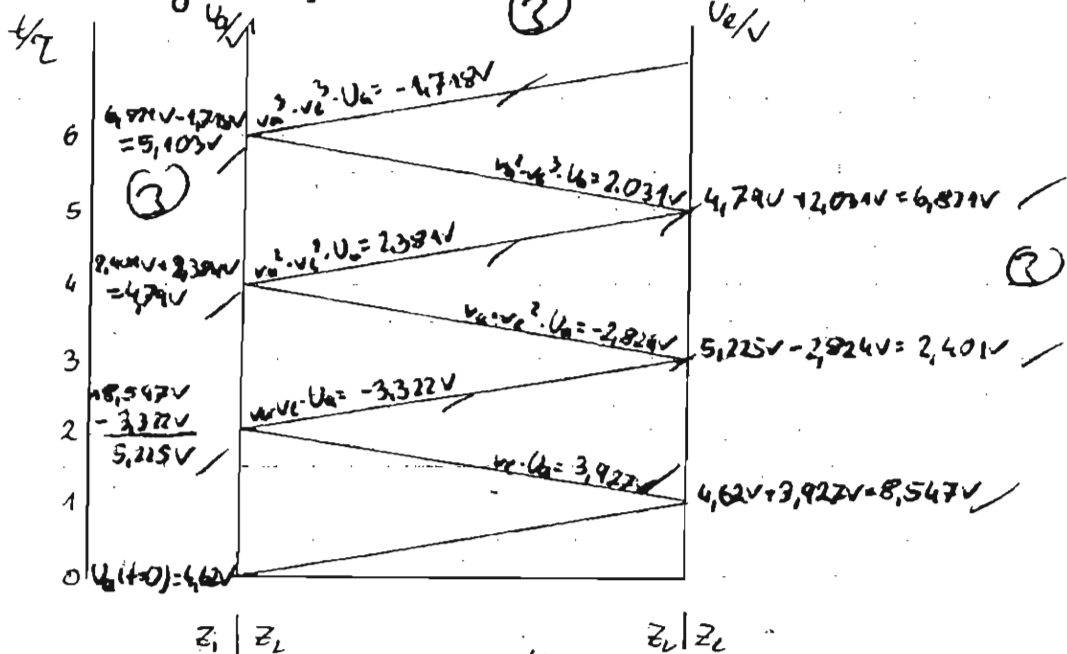 t/τ
Ua/V
③
Ue/V
6
6,821V-1,718V
=5,103V
va³·ve³·Ua= -1,718V
③
va²·ve³·Ua=2.031V
5
4,79V+2,031V=6,821V
4
=4,79V
va²·ve²·Ua=2,381V
③
va·ve²·Ua=-2,824V
3
5,225V-2,824V= 2,401V
8,547V
- 3,322V
5,225V
2
va·ve·Ua= -3,322V
ve·Ua= 3,927V
1
4,62V+3,927V=8,547V
0
Ua(t=0)=4,62V
Zi | ZL
ZL | Ze